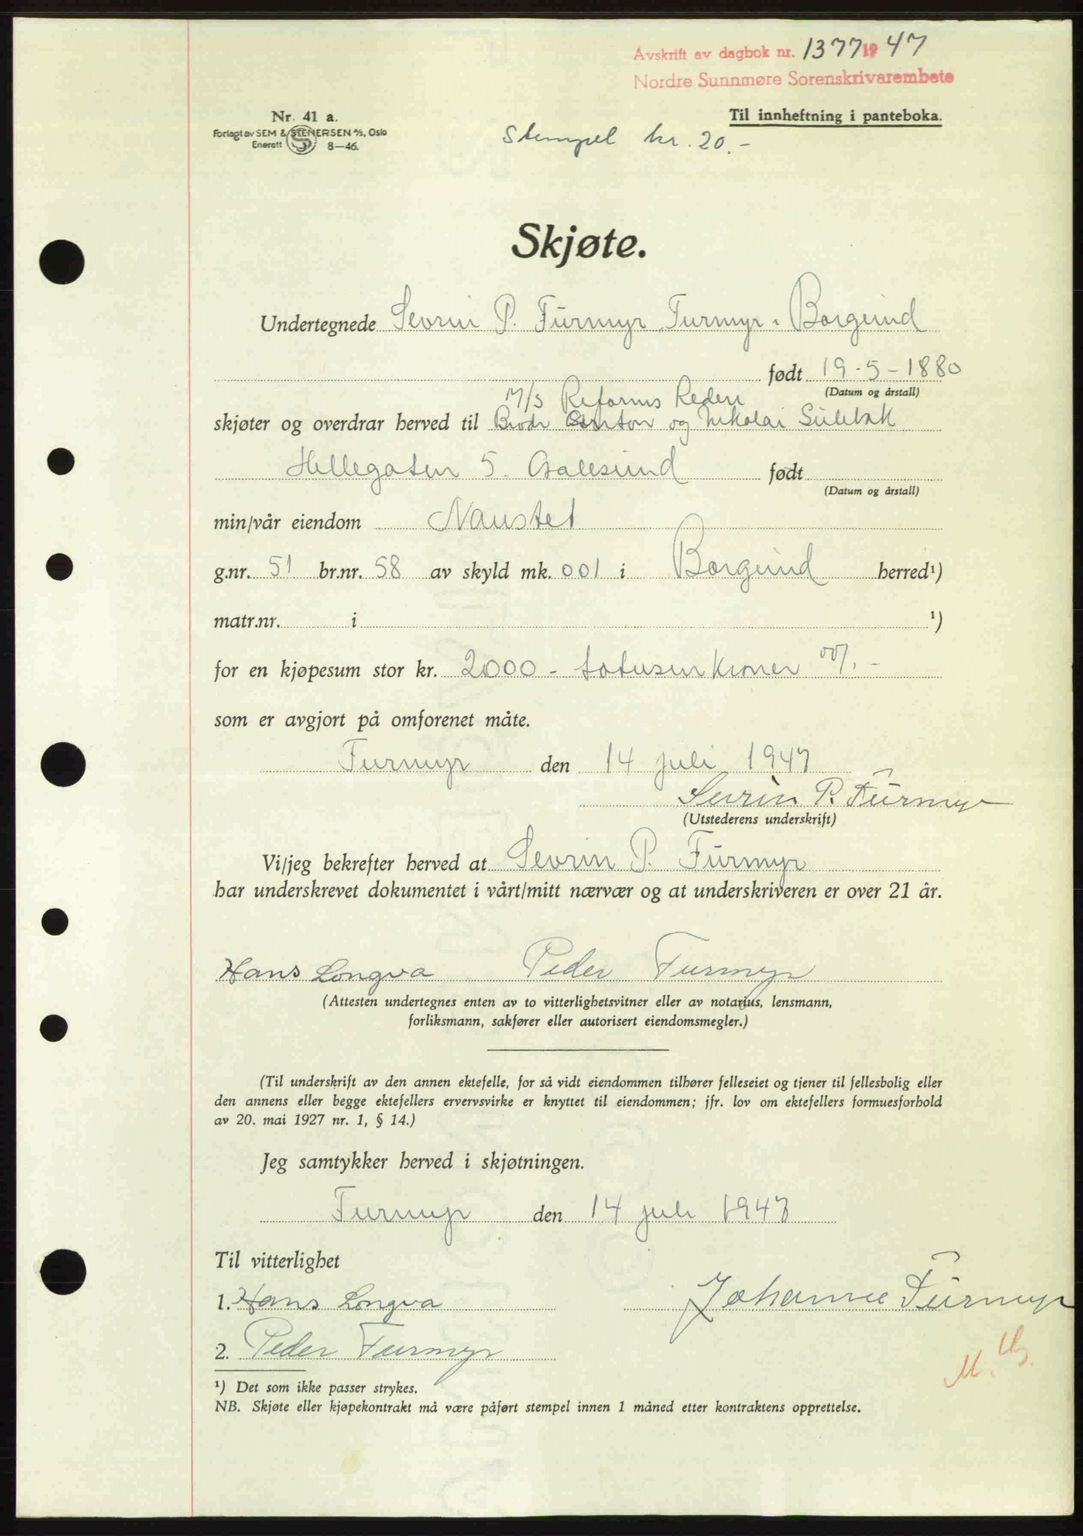 Avskrift av dagbok nr. 1377 1947
Nordre Sunnmøre Sorenskrivarembete
Nr. 41 a.
Til innheftning i panteboka.
Forlagt av SEM & STENERSEN A/S, Oslo
Enerett 8—46.
Stempel kr. 20.-
Skjøte.
Undertegnede Sevrin P. Furmyr, Furmyr. Borgund
født 19-5-1880
(Datum og årstall)
M/S Reforms Rederi
skjøter og overdrar herved til Brødr og Nikolai
Hellegaten 5. Aalesund født
(Datum og årstall)
min/vår eiendom Naustet
g.nr. 51 br.nr. 58 av skyld mk. 001 i Borgund herred¹)
matr.nr. i ¹)
for en kjøpesum stor kr. 2000 - totusen kroner 00/. -
som er avgjort på omforenet måte.
Furmyr den 14 juli 1947
Sevrin P. Furmyr
(Utstederens underskrift)
Vi/jeg bekrefter herved at Sevrin P. Furmyr
har underskrevet dokumentet i vårt/mitt nærvær og at underskriveren er over 21 år.
Hans Longva Peder Furmyr
(Attesten undertegnes enten av to vitterlighetsvitner eller av notarius, lensmann,
forliksmann, sakfører eller autorisert eiendomsmegler.)
(Til underskrift av den annen ektefelle, for så vidt eiendommen tilhører felleseiet og tjener til fellesbolig eller
den annens eller begge ektefellers ervervsvirke er knyttet til eiendommen; jfr. lov om ektefellers formuesforhold
av 20. mai 1927 nr. 1, § 14.)
Jeg samtykker herved i skjøtningen.
Furmyr den 14 juli 1947
Til vitterlighet
1. Hans Longva Johanne Furmyr
2. Peder Furmyr
¹) Det som ikke passer strykes.
NB. Skjøte eller kjøpekontrakt må være påført stempel innen 1 måned etter kontraktens opprettelse.